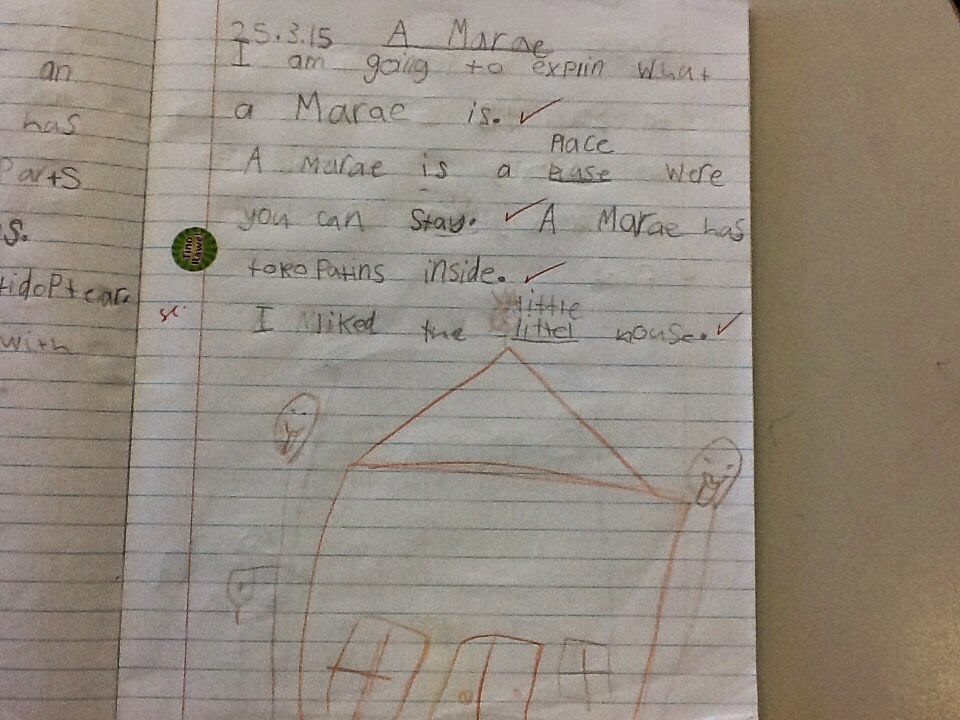 an
has
Parts
s.
tidopteara
with
25.3.15 A Marae
I am goiig to expiin what
a Marae is.
Place
A Marae is a buse were
you can Stay. A Marae has
toko Patins inside.
little
I liked the littel house.
Tino Rawe!